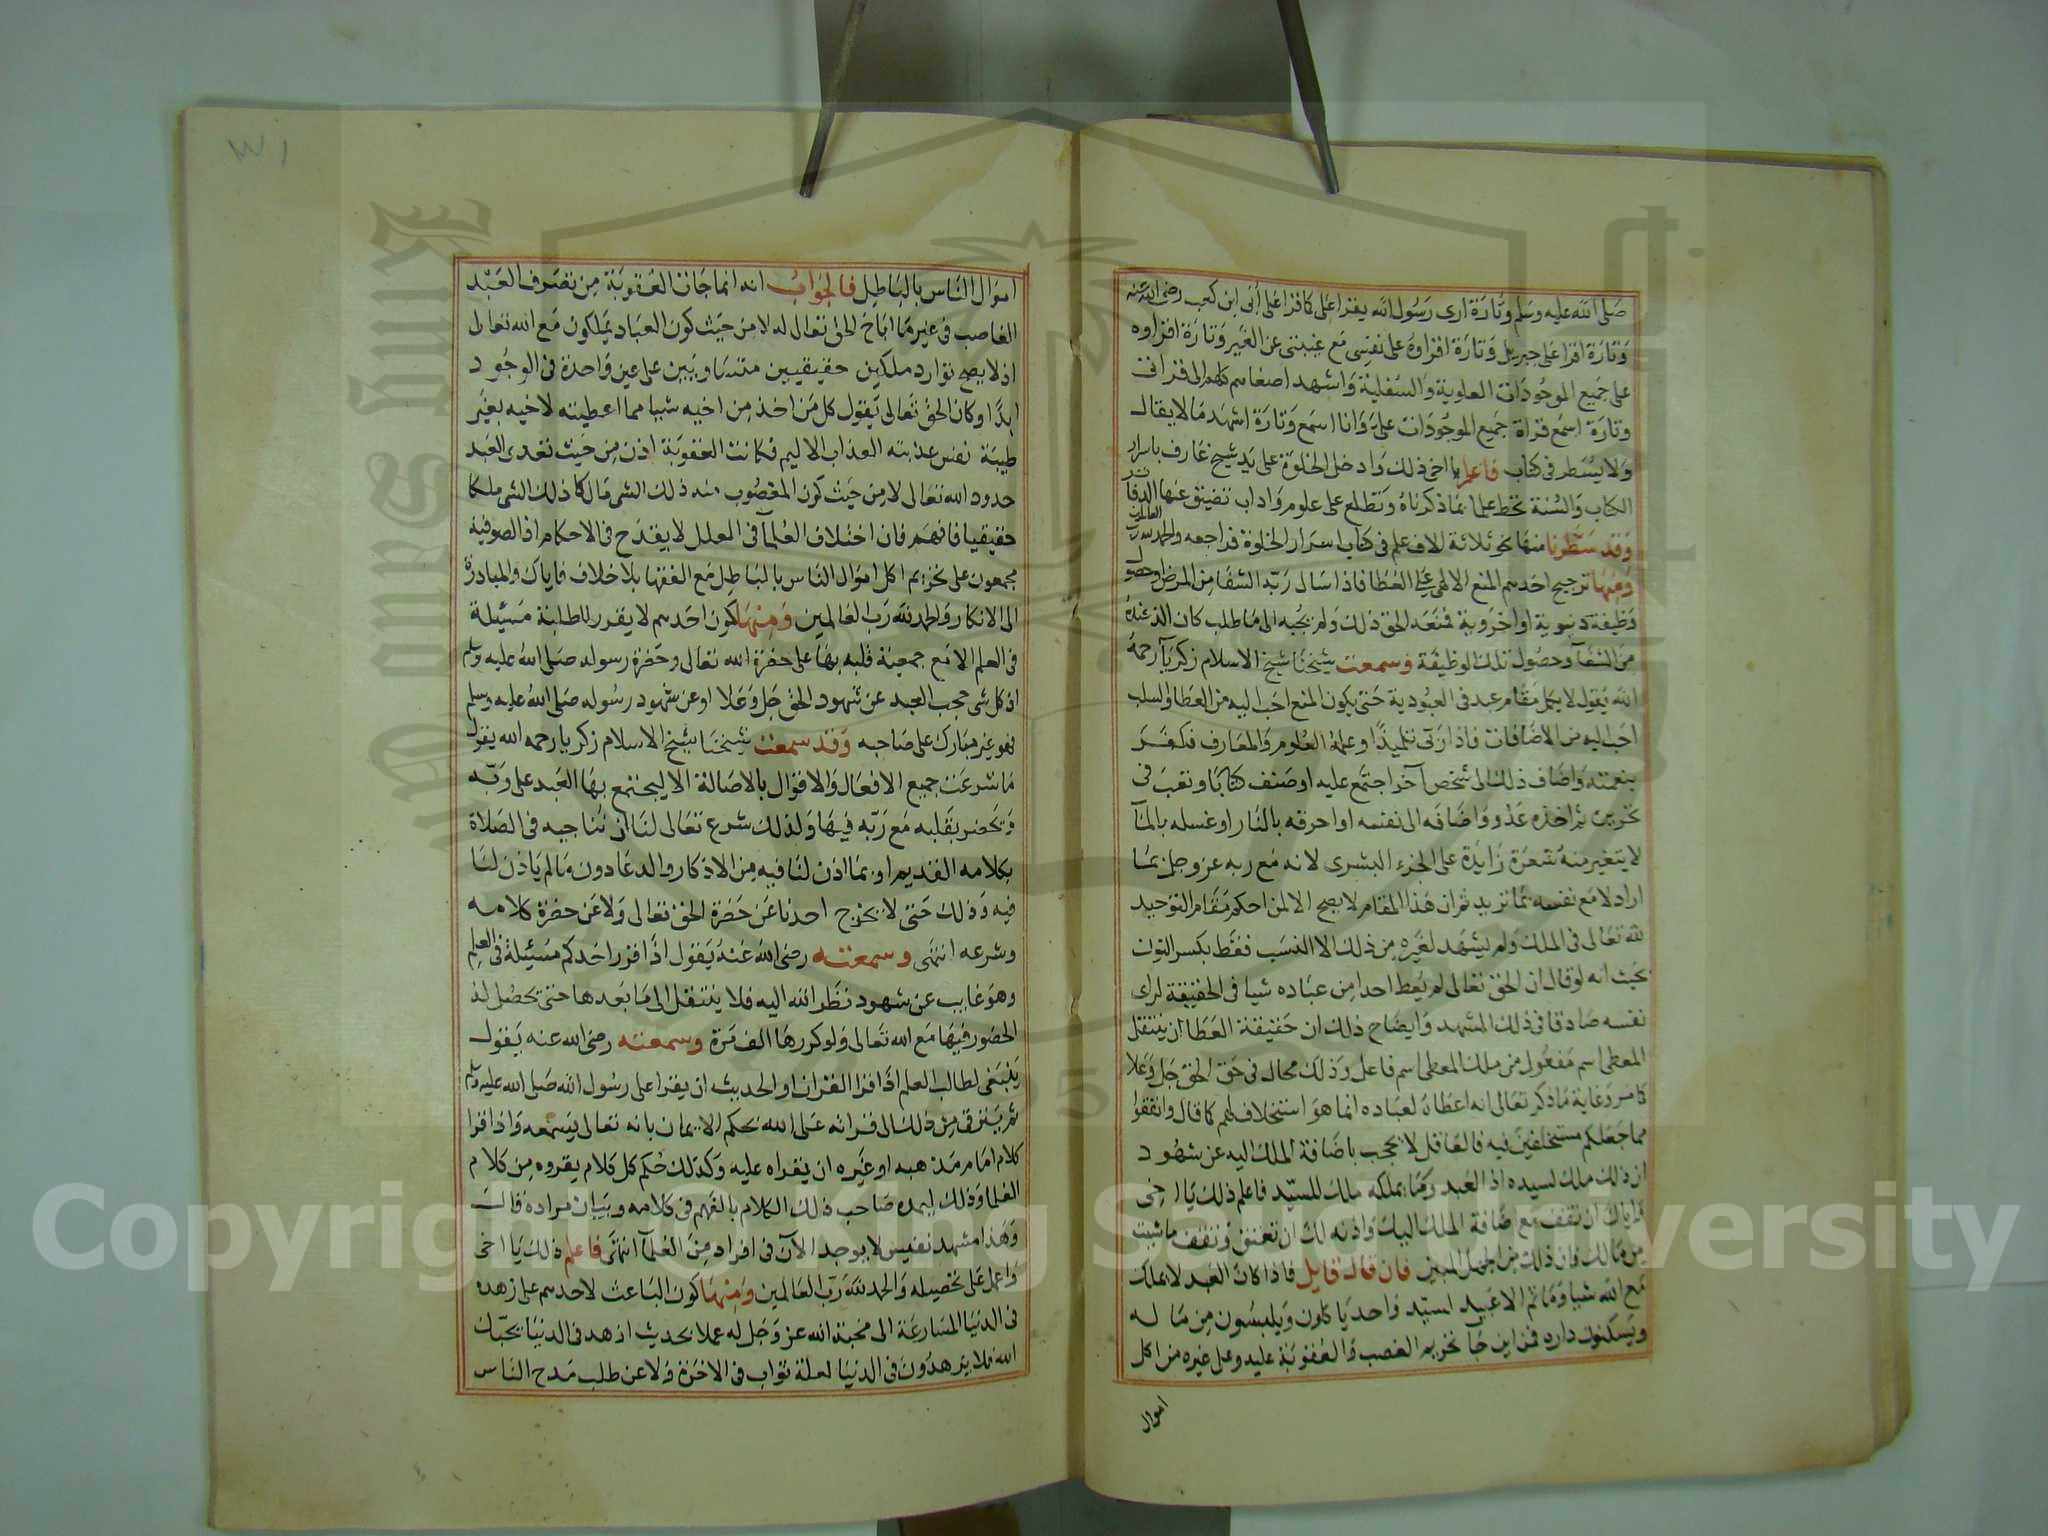 صلى الله عليه وسلم وتارة ارى رسول الله يقرا على كما قرا على أبي ابن كعب رضى الله عنه
وتارة اقرا على جبريل وتارة اقراوه على نفسى مع غيبتى عن الغير وتارة اقراوه
على جميع الموجودات العلوية والسفلية واشهد اصغاهم كلهم الى قراتى
وتارة اسمع قراة جميع الموجودات على وانا اسمع وتارة اشهد ما لا يقال
ولا يسطر فى كتاب فاعلم يا اخى ذلك وادخل الخلوة على يد شيخ عارف باسرار
الكتاب والسنة تحط علما بما ذكرناه وتطلع على علوم واداب تضيق عنها الدفاتر
وقد سطرنا منها نحو ثلاثة الاف علم فى كتاب اسرار الخلوة فراجعه والحمد لله رب العالمين
ومنها ترجيح احدهم المنع الالهى على العطا فاذا سال ربه الشفا من المرض او حصول
وظيفة دنيوية او اخروية فمنعه الحق ذلك ولم يجبه الى ما طلب كان الذ عنده
من الشفآ وحصول تلك الوظيفة وسمعت شيخنا شيخ الاسلام زكريآ رحمه
الله يقول لا يكمل مقام عبد فى العبودية حتى يكون المنع احب اليه من العطا والسلب
احب اليه من الاضافات فاذا ربى تلميذًا وعلمه العلوم والمعارف فكفر
بنعمته واضاف ذلك الى شخص آخر اجتمع عليه او صنف كتابا وتعب فى
تحريره ثم اخذه عدو واضافه الى نفسه او احرقه بالنار او غسله بالمآ
لا يتغير منه شعرة زايدة على الجزء البشرى لانه مع ربه عز وجل بما
اراد لا مع نفسه بما تريد ثم ان هذا المقام لا يصح الا لمن احكم مقام التوحيد
لله تعالى فى الملك ولم يشهد لغيره من ذلك الا النسب فقط بكسر النون
بحيث انه لو قال ان الحق تعالى لم يعط احدا من عباده شيا فى الحقيقة لراى
نفسه صادقا فى ذلك المشهد وايضاح ذلك ان حقيقة العطا ان ينتقل
المعطى اسم مفعول من ملك المعطى اسم فاعل وذلك محال فى حق الحق جل وعلا
كما مر وغاية ما ذكر تعالى انه اعطاه لعباده انما هو استخلاف لهم كما قال وانفقوا
مما جعلكم مستخلفين فيه فالعاقل لا يحجب باضافة الملك اليه عن شهود
ان ذلك ملك لسيده اذ العبد وما يملكه ملك للسيد فاعلم ذلك يا اخى
واياك ان تقف مع ضافة الملك اليك واذنه لك ان تعتق وتقف ما شيت
من مالك فان ذلك من الجهل المبين فان قال قايل فاذا كان العبد لا يملك
مع الله شيا وما ثم الا عبيد لسيد واحد يا كلون ويلبسون من ما له
ويسكنون داره فمن اين جآ تحريم الغصب والعقوبة عليه وعلى غيره من اكل
اموال
اموال الناس بالباطل فالجواب انه انما جات العقوبة من تصرف العبد
الغاصب فى غير ما اباح الحق تعالى له لا من حيث كون العباد يملكون مع الله تعالى
اذ لا يصح توارد ملكين حقيقيين متساويين على عين واحدة فى الوجود
ابدًا وكان الحق تعالى يقول كل من اخذ من اخيه شيا مما اعطيته لاخيه بغير
طيبة نفس عذبته العذاب الاليم فكانت العقوبة اذن من حيث تعدى العبد
حدود الله تعالى لا من حيث كون المغصوب منه ذلك الشى مالكا ذلك الشى ملكا
حقيقيا فافهم فان اختلاف العلمآ فى العلل لا يقدح فى الاحكام اذ الصوفية
مجمعون على تحريم اكل اموال الناس بالباطل مع الفقها بلا خلاف فاياك والمبادرة
الى الانكار والحمد لله رب العالمين ومنها كون احدهم لا يقرر للطلبة مسيلة
فى العلم الا مع جمعية قلبه بها على حضرة الله تعالى وحضرة رسوله صلى الله عليه وسلم
اذ كل شى حجب العبد عن شهود الحق جل وعلا او عن شهود رسوله صلى الله عليه وسلم
فهو غير مبارك على صاحبه وقد سمعت شيخنا شيخ الاسلام زكريا رحمه الله يقول
ما شرعت جميع الافعال والاقوال بالاصالة الا ليجتمع بها العبد على ربه
ويحضر بقلبه مع ربه فيها ولذلك شرع تعالى لنا ان نناجيه فى الصلاة
بكلامه القديم او بما اذن لنا فيه من الاذكار والدعا دون ما لم ياذن لنا
فيه وذلك حتى لا يخرج احدنا عن حضرة الحق تعالى ولا عن حضرة كلامه
وشرعه انتهى وسمعته رضى الله عنه يقول اذا قرر احدكم مسيلة فى العلم
وهو غايب عن شهود نظر الله اليه فلا ينتقل الى ما بعدها حتى يحصل له
الحضور فيها مع الله تعالى ولو كررها الف مرة وسمعته رضى الله عنه يقول
ينبغى لطالب العلم اذا قرا القران او الحديث ان يقرا على رسول الله صلى الله عليه وسلم
ثم يترقى من ذلك الى قراته على الله بحكم الايمان بانه تعالى يسمعه واذا قرا
كلام امام مذهبه او غيره ان يقراه عليه وكذلك حكم كل كلام يقروه من كلام
العلما وذلك ليمده صاحب ذلك الكلام بالفهم فى كلامه وبيان مراده قال
وهذا مشهد نفيس لا يوجد الآن فى افراد من العلمآ انتهى فاعلم ذلك يا اخى
واعمل على تحصيله والحمد لله رب العالمين ومنها كون الباعث لاحدهم على زهده
فى الدنيا المسارعة الى محبة الله عز وجل له عملا بحديث ازهد فى الدنيا يحبك
الله فلا يزهدون فى الدنيا لعلة ثواب فى الاخرة ولا عن طلب مدح الناس
Copyright © King Saud University